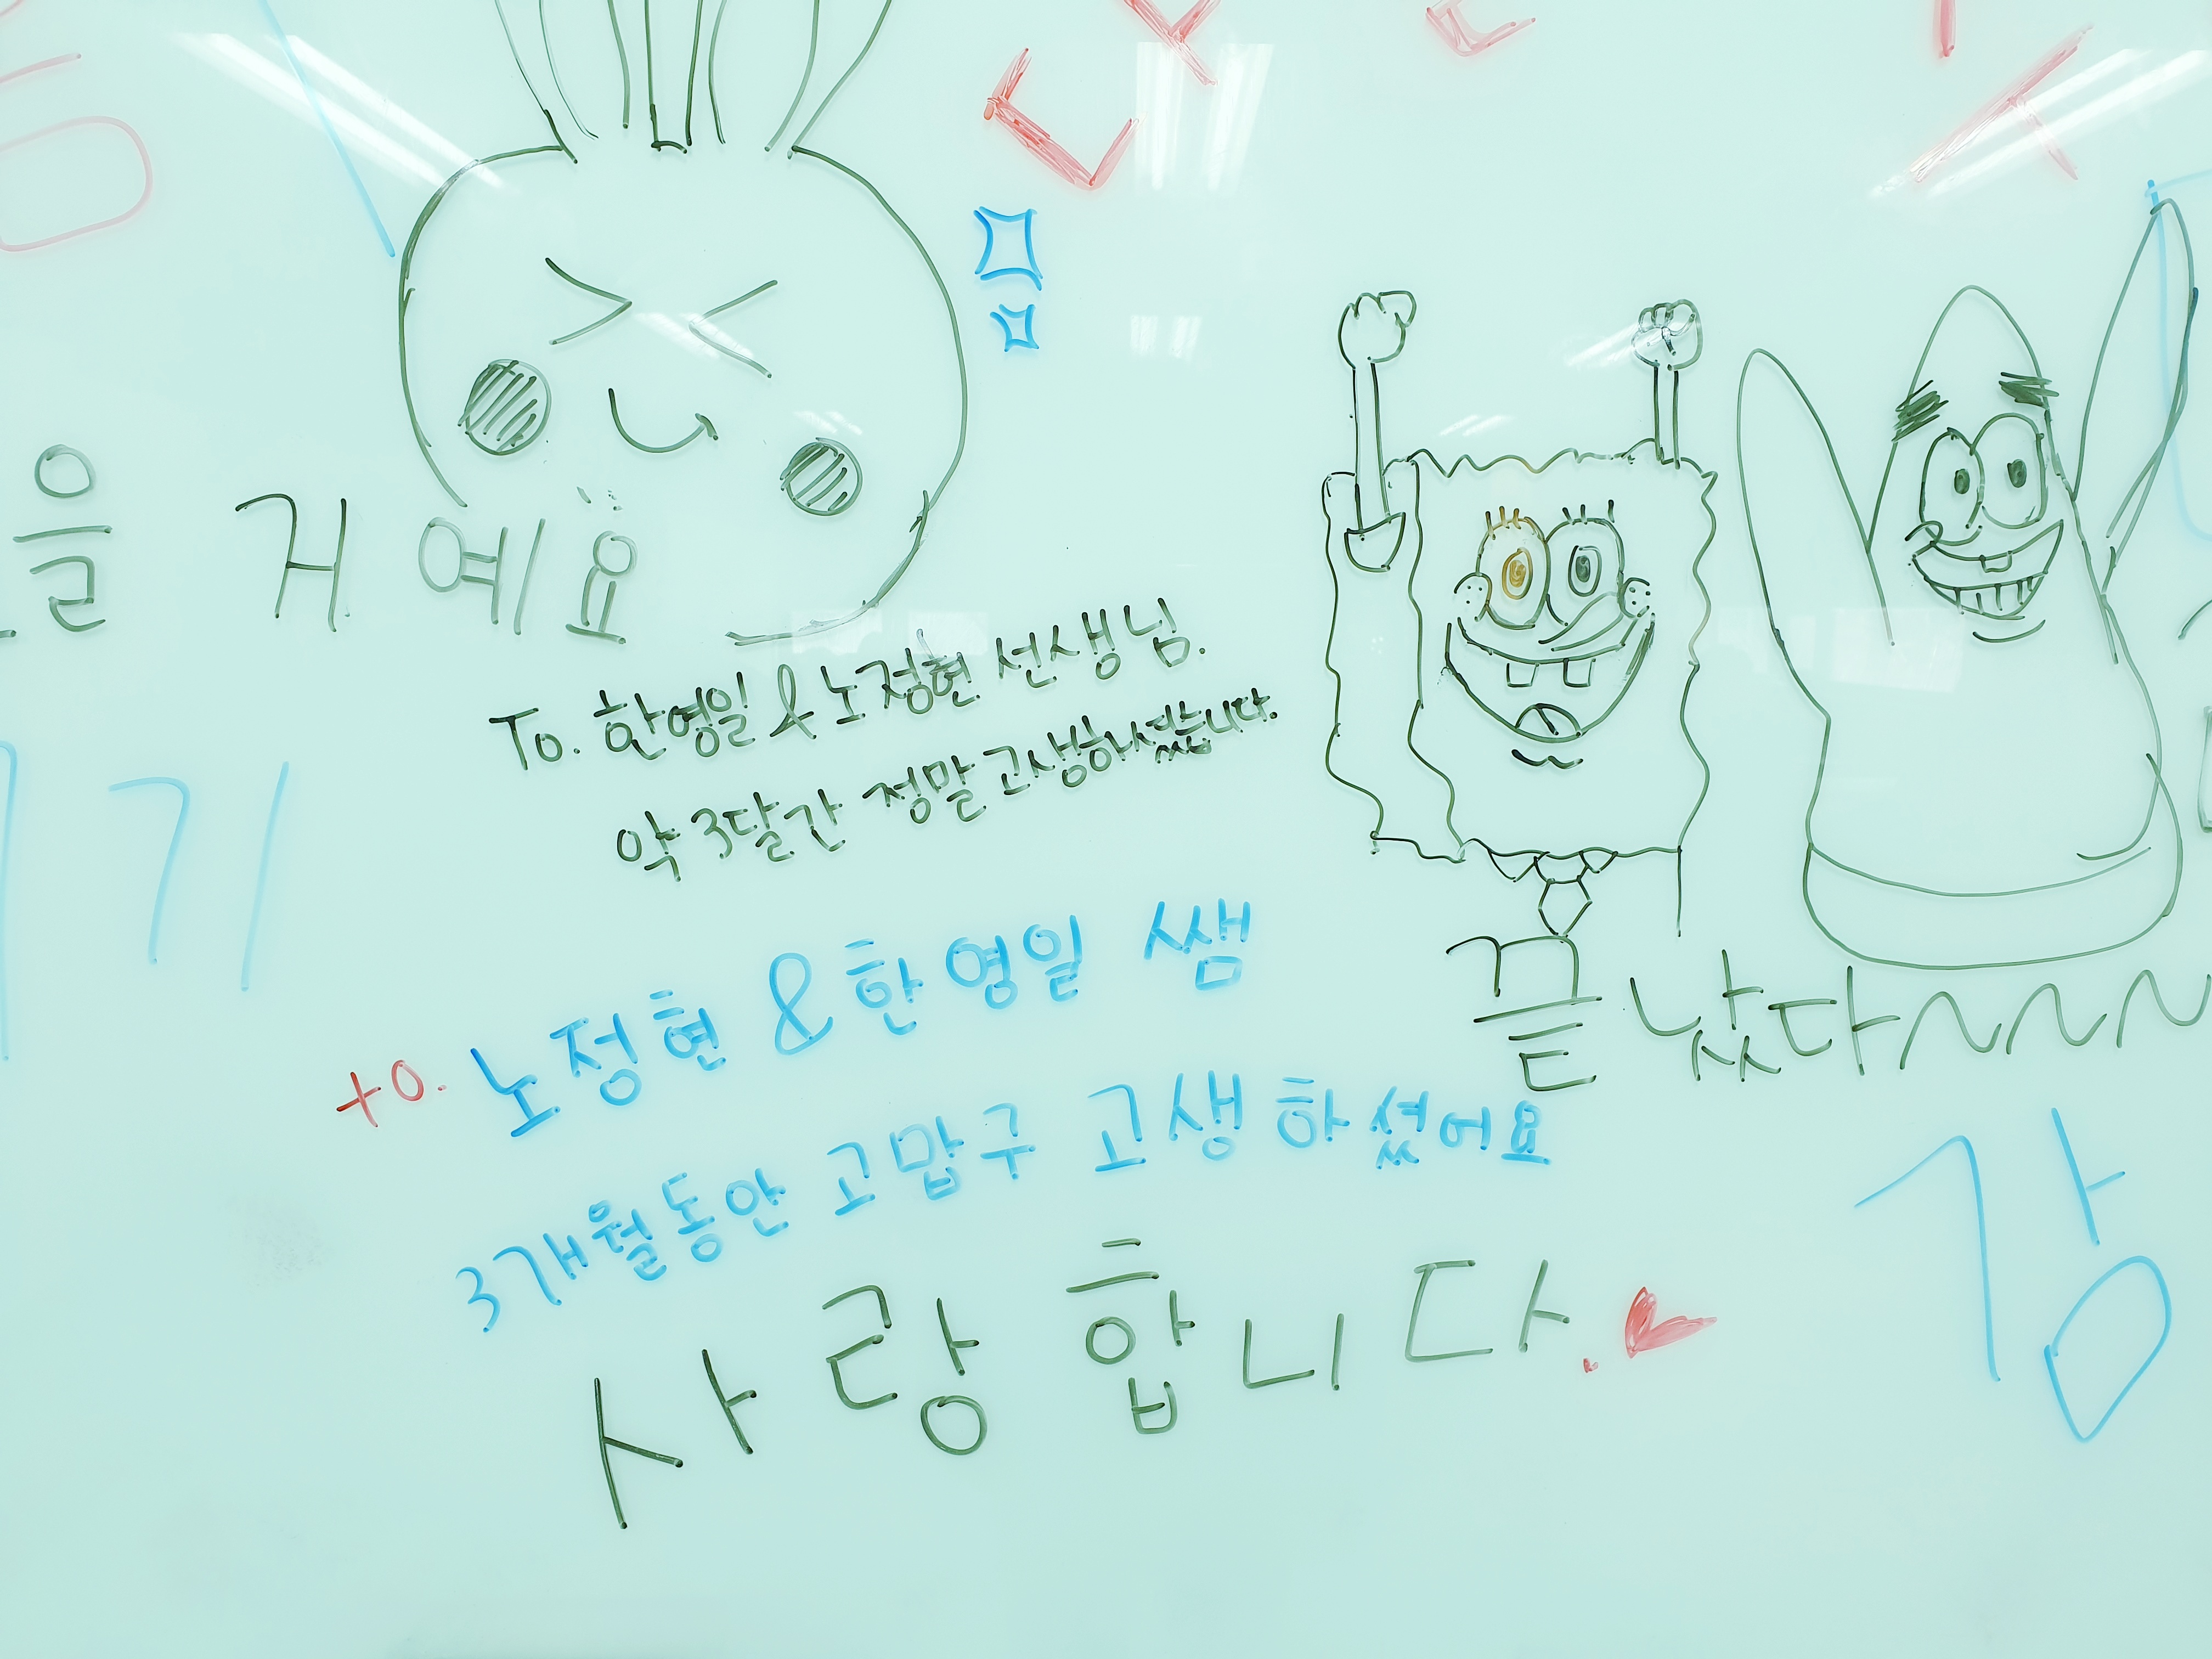 을 거예요
To. 한영일 & 노정현 선생님.
약 3달간 정말 고생하셨습니다.
끝났다~~~
to. 노정현 & 한영일 쌤
3개월동안 고맙구 고생하셨어요
사랑합니다.
감